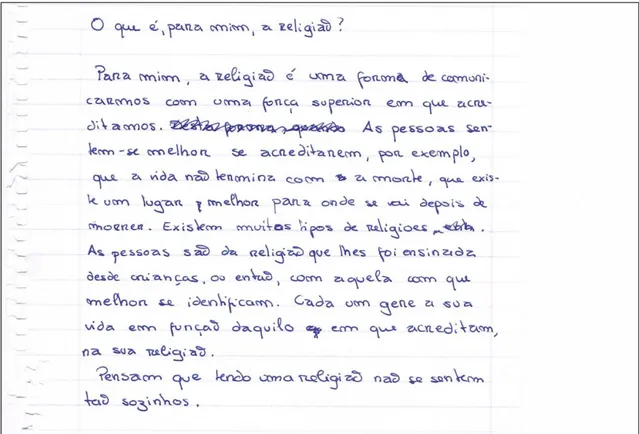 O que é, para mim, a religião?
Para mim, a religião é uma forma de comuni-
carmos com uma força superior em que acre-
ditamos. As pessoas sen-
tem-se melhor se acreditarem, por exemplo,
que a vida não termina com a morte, que exis-
te um lugar melhor para onde se vai depois de
morrer. Existem muitos tipos de religiões.
As pessoas são da religião que lhes foi ensinada
desde crianças, ou então, com aquela com que
melhor se identificam. Cada um gere a sua
vida em função daquilo em que acreditam,
na sua religião.
Pensam que tendo uma religião não se sentem
tão sozinhos.